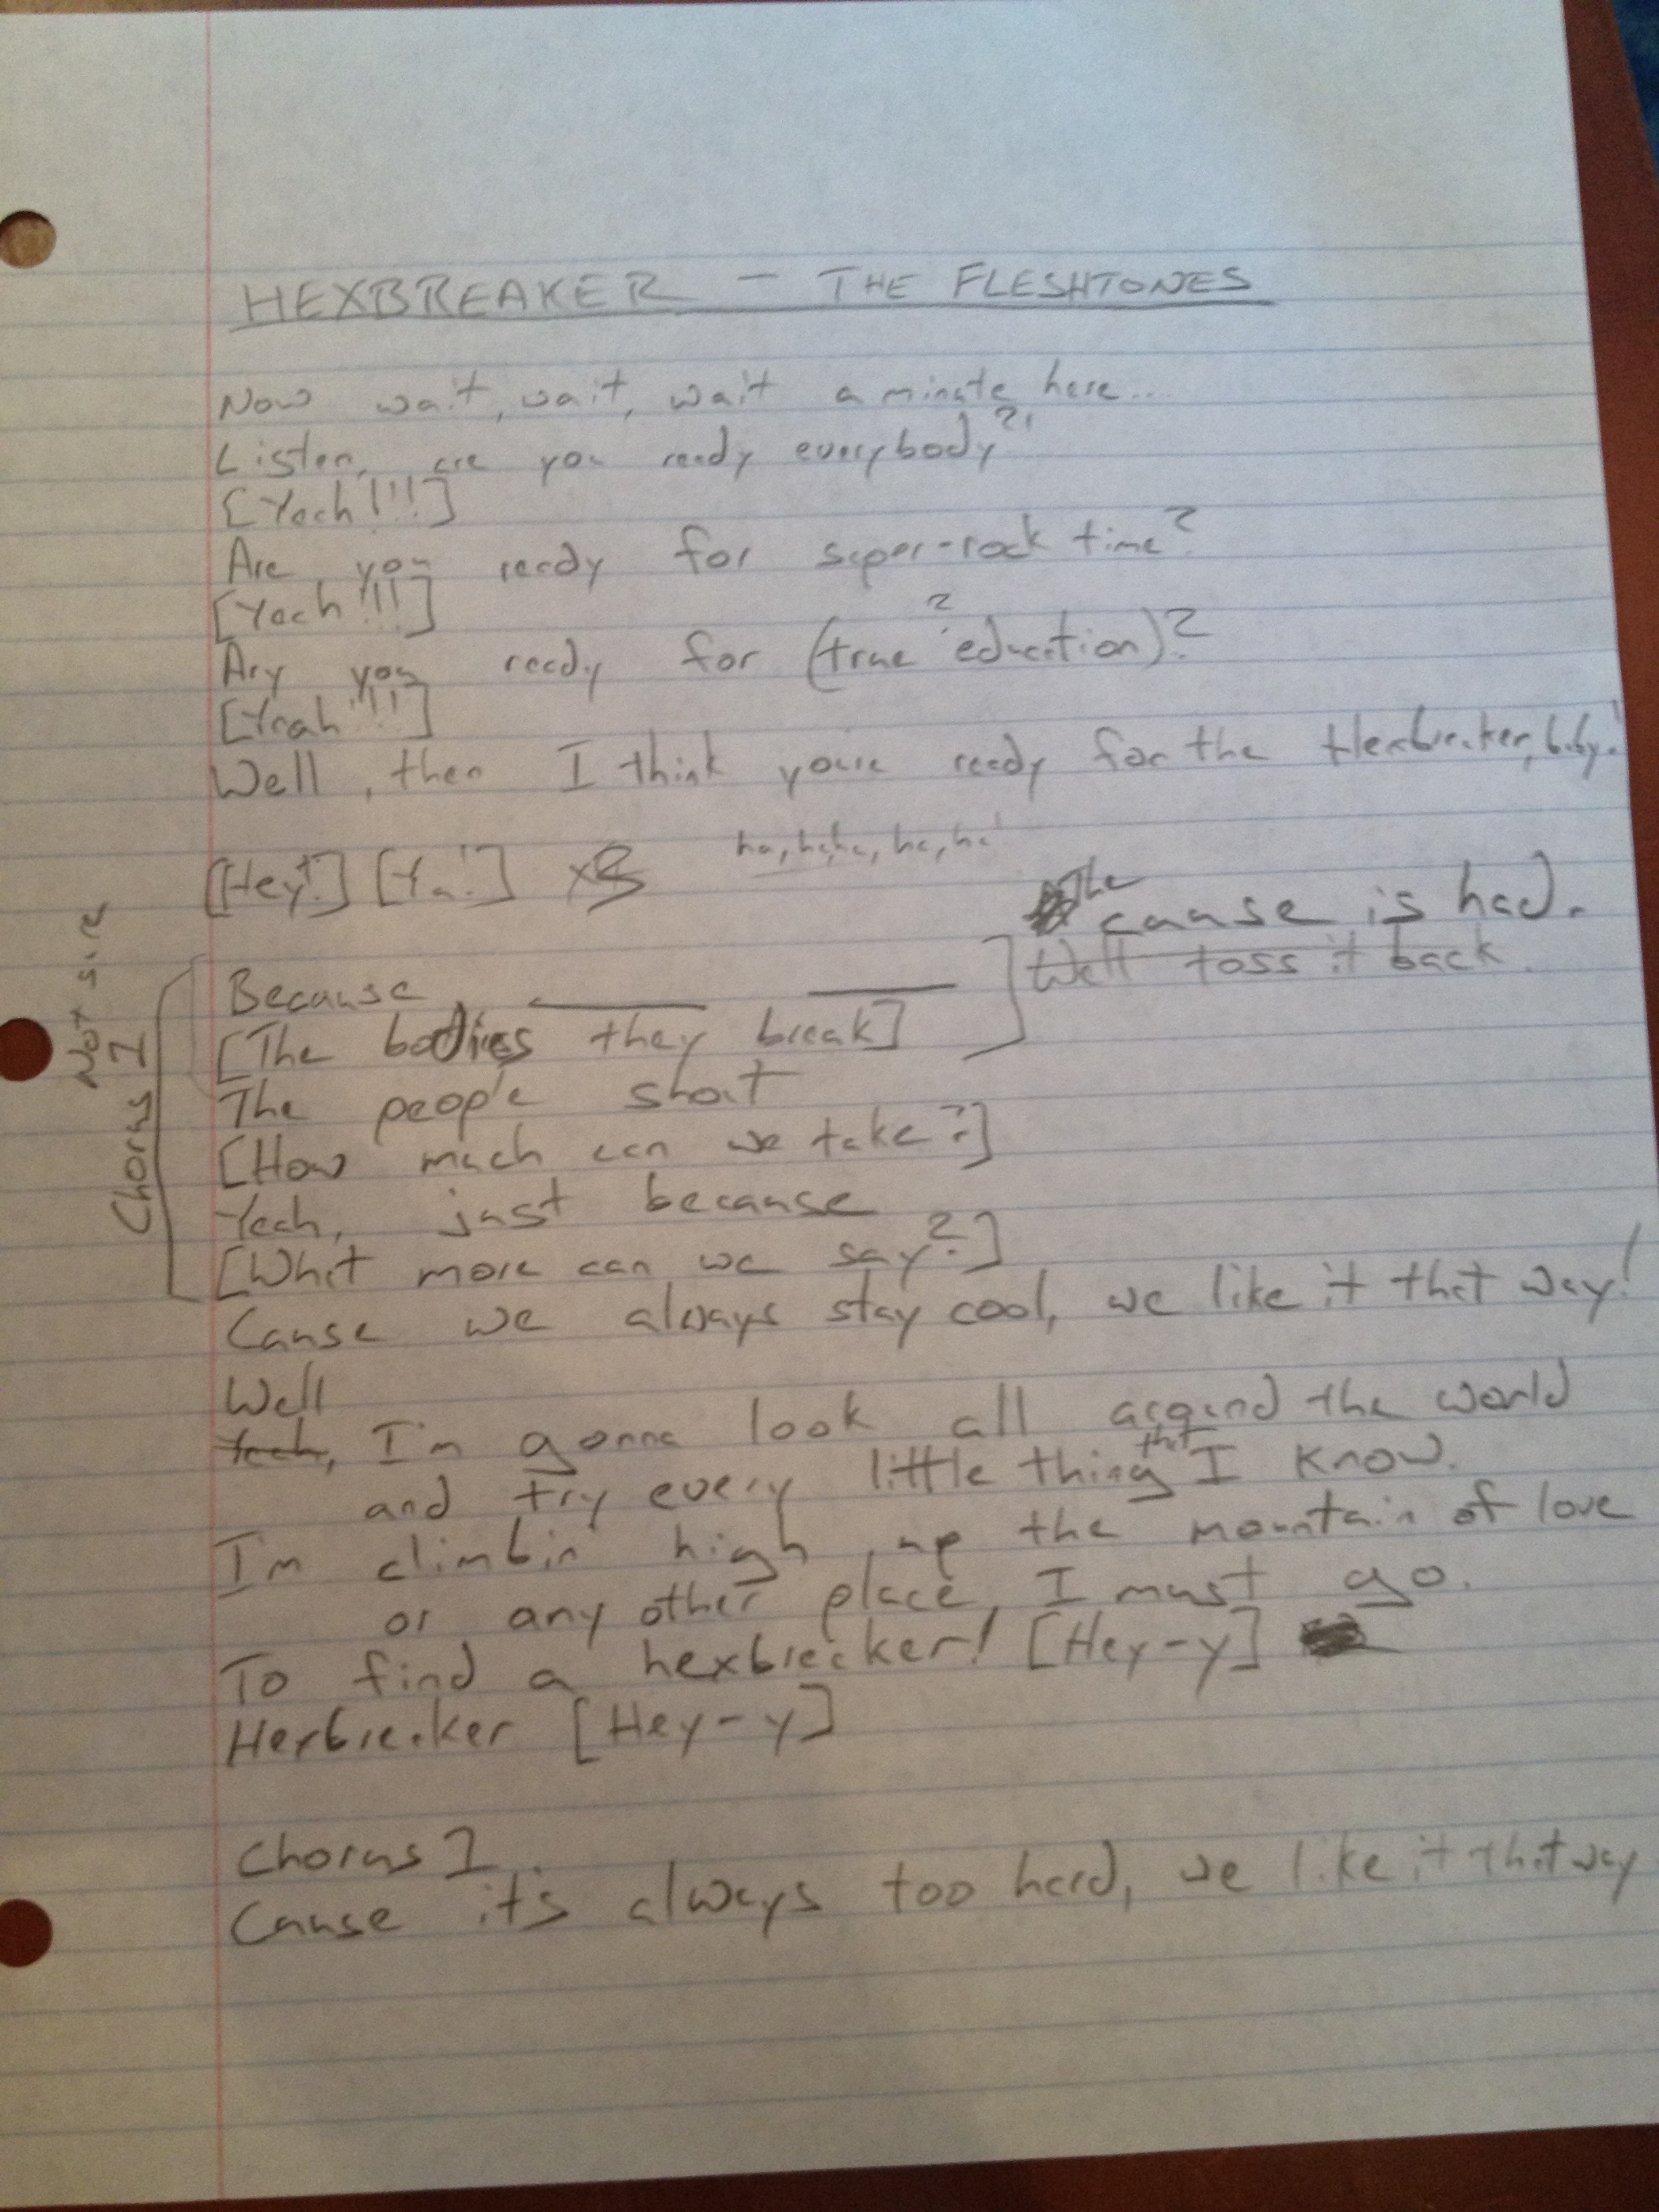 HEXBREAKER - THE FLESHTONES
Now wait, wait, wait a minute here...
Listen, are you ready everybody?!
[Yeah!!!]
Are you ready for super-rock time?
[Yeah!!!]
Ary you ready for (true education)?
?
[Yeah!!!]
Well, then I think you're ready for the Hexbreaker, baby!
[Hey!] [Ya!] x8
ha, ha, ha, ha, ha!
The cause is had.
Well toss it back
Not sure
Chorus 1
Because ___ ___
[The bodies they break]
The people shout
[How much can we take?]
Yeah, just because
[What more can we say?]
Cause we always stay cool, we like it that way!
Well
Yeah, I'm gonna look all around the world
and try every little thing that I know.
I'm climbin' high up the mountain of love
or any other place I must go.
To find a hexbreaker! [Hey-y]
Hexbreaker [Hey-y]
Chorus 1
Cause it's always too hard, we like it that way